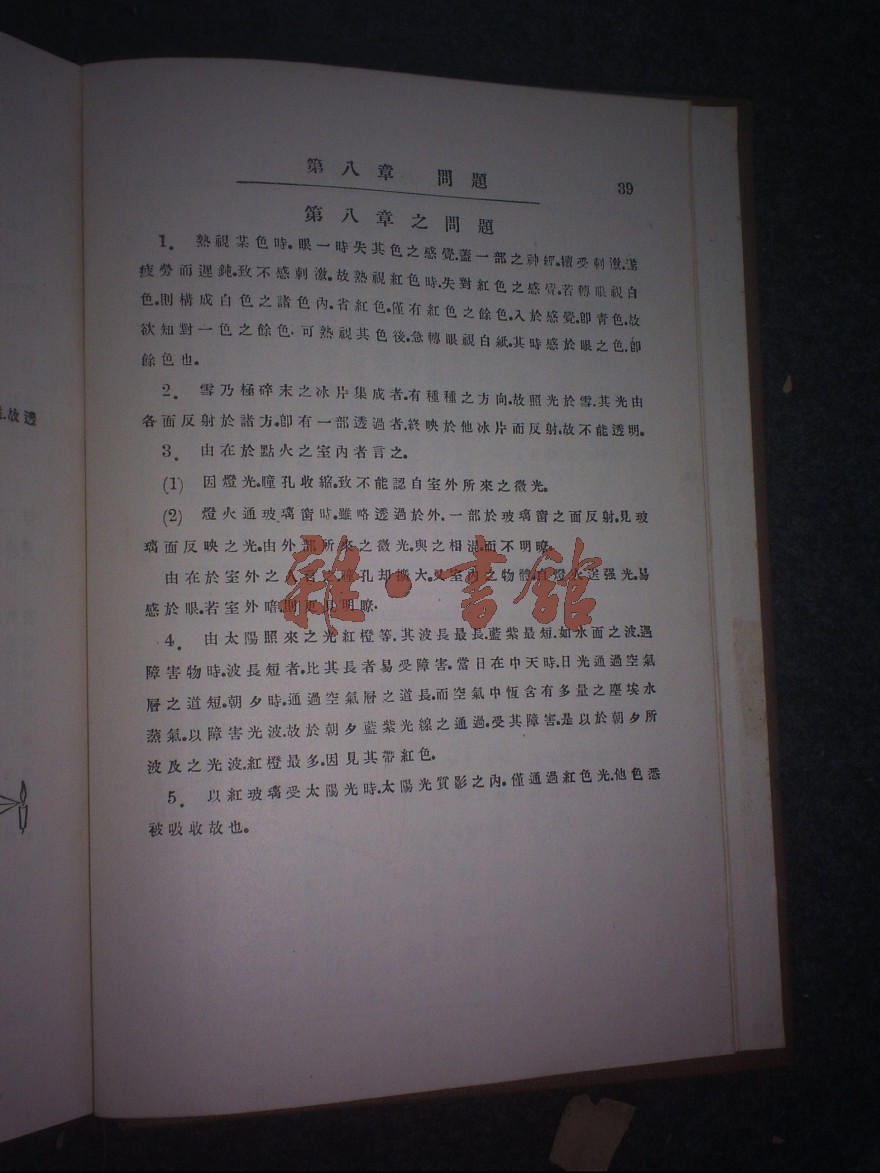 障.故透
第八章 問題 39
第八章之問題
1. 熟視某色時.眼一時失其色之感覺.蓋一部之神經.續受刺激.遂
疲勞而遲鈍.致不感刺激.故熟視紅色時.失對紅色之感覺.若轉眼視白
色.則構成白色之諸色內.省紅色.僅有紅色之餘色.入於感覺.卽靑色.故
欲知對一色之餘色.可熟視其色後.急轉眼視白紙.其時感於眼之色.卽
餘色也.
2. 雪乃極碎末之冰片集成者.有種種之方向.故照光於雪.其光由
各面反射於諸方.卽有一部透過者.終映於他冰片而反射.故不能透明.
3. 由在於點火之室內者言之.
(1) 因燈光.瞳孔收縮.致不能認自室外所來之微光.
(2) 燈火通玻璃窗時.雖略透過於外.一部於玻璃窗之面反射.見玻
璃面反映之光.由外部所來之微光.與之相混.而不明瞭.
由在於室外之人言之.瞳孔却擴大.且室內之物體.自燈火送强光.易
感於眼.若室外暗.則更見明瞭.
4. 由太陽照來之光紅橙等.其波長最長.藍紫最短.如水面之波.遇
障害物時.波長短者.比其長者易受障害.當日在中天時.日光通過空氣
層之道短.朝夕時.通過空氣層之道長.而空氣中恆含有多量之塵埃水
蒸氣.以障害光波.故於朝夕藍紫光線之通過.受其障害.是以於朝夕所
波及之光波.紅橙最多.因見其帶紅色.
5. 以紅玻璃受太陽光時.太陽光質影之內.僅通過紅色光.他色悉
被吸收故也.
雜·書館